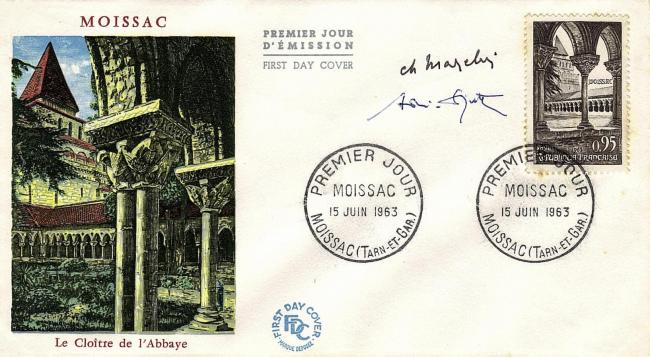 MOISSAC
Le Cloître de l'Abbaye
PREMIER JOUR
D'ÉMISSION
FIRST DAY COVER
MOISSAC
0,95
FRANÇAISE
PREMIER JOUR
MOISSAC
15 JUIN 1963
MOISSAC (TARN-ET-GAR.)
PREMIER JOUR
MOISSAC
15 JUIN 1963
MOISSAC (TARN-ET-GAR.)
FIRST DAY COVER
FDC
MARQUE DÉPOSÉE